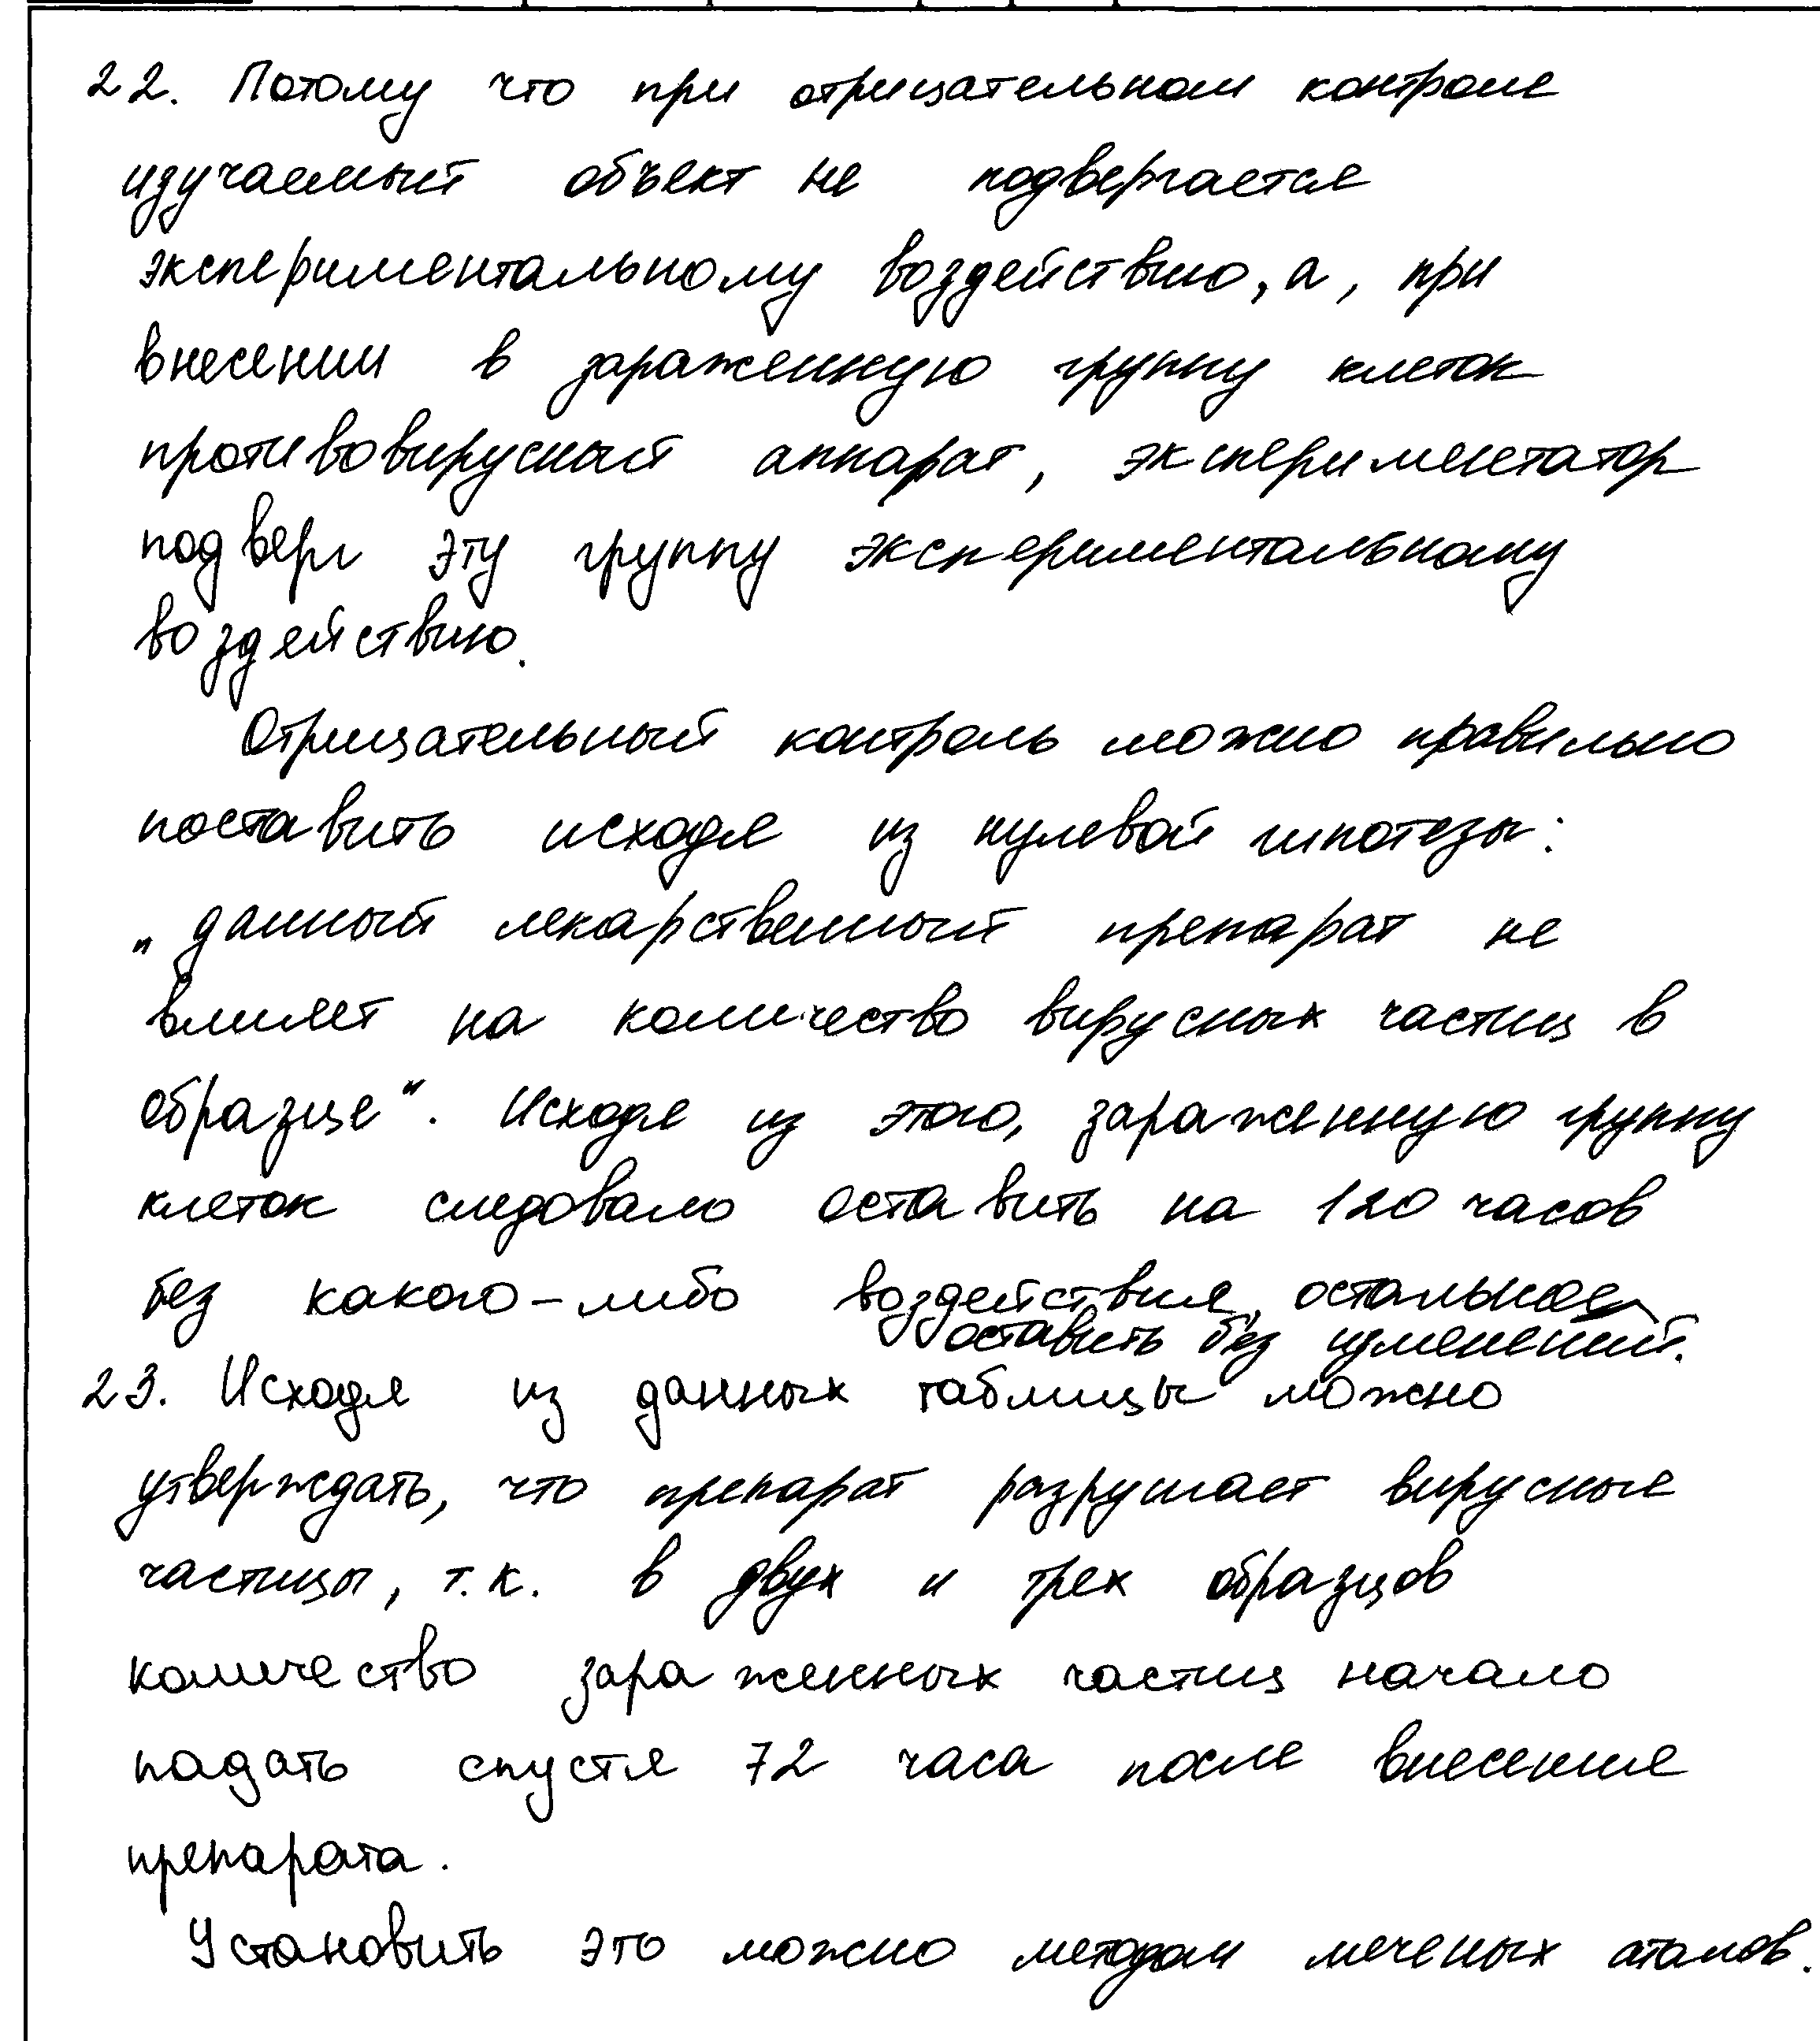 22. Потому что при отрицательном контроле
изучаемый объект не подвергается
экспериментальному воздействию, а, при
внесении в зараженную группу клеток
противовирусный аппарат, экспериментатор
подверг эту группу экспериментальному
воздействию.
Отрицательный контроль можно правильно
поставить исходя из нулевой гипотезы:
„данный лекарственный препарат не
влияет на количество вирусных частиц в
образце“. Исходя из этого, зараженную группу
клеток следовало оставить на 120 часов
без какого-либо воздействия, остальное
оставить без изменений.
23. Исходя из данных таблицы можно
утверждать, что препарат разрушает вирусные
частицы, т.к. в двух и трех образцов
количество зараженных частиц начало
падать спустя 72 часа после внесения
препарата.
Установить это можно методом меченых атомов.